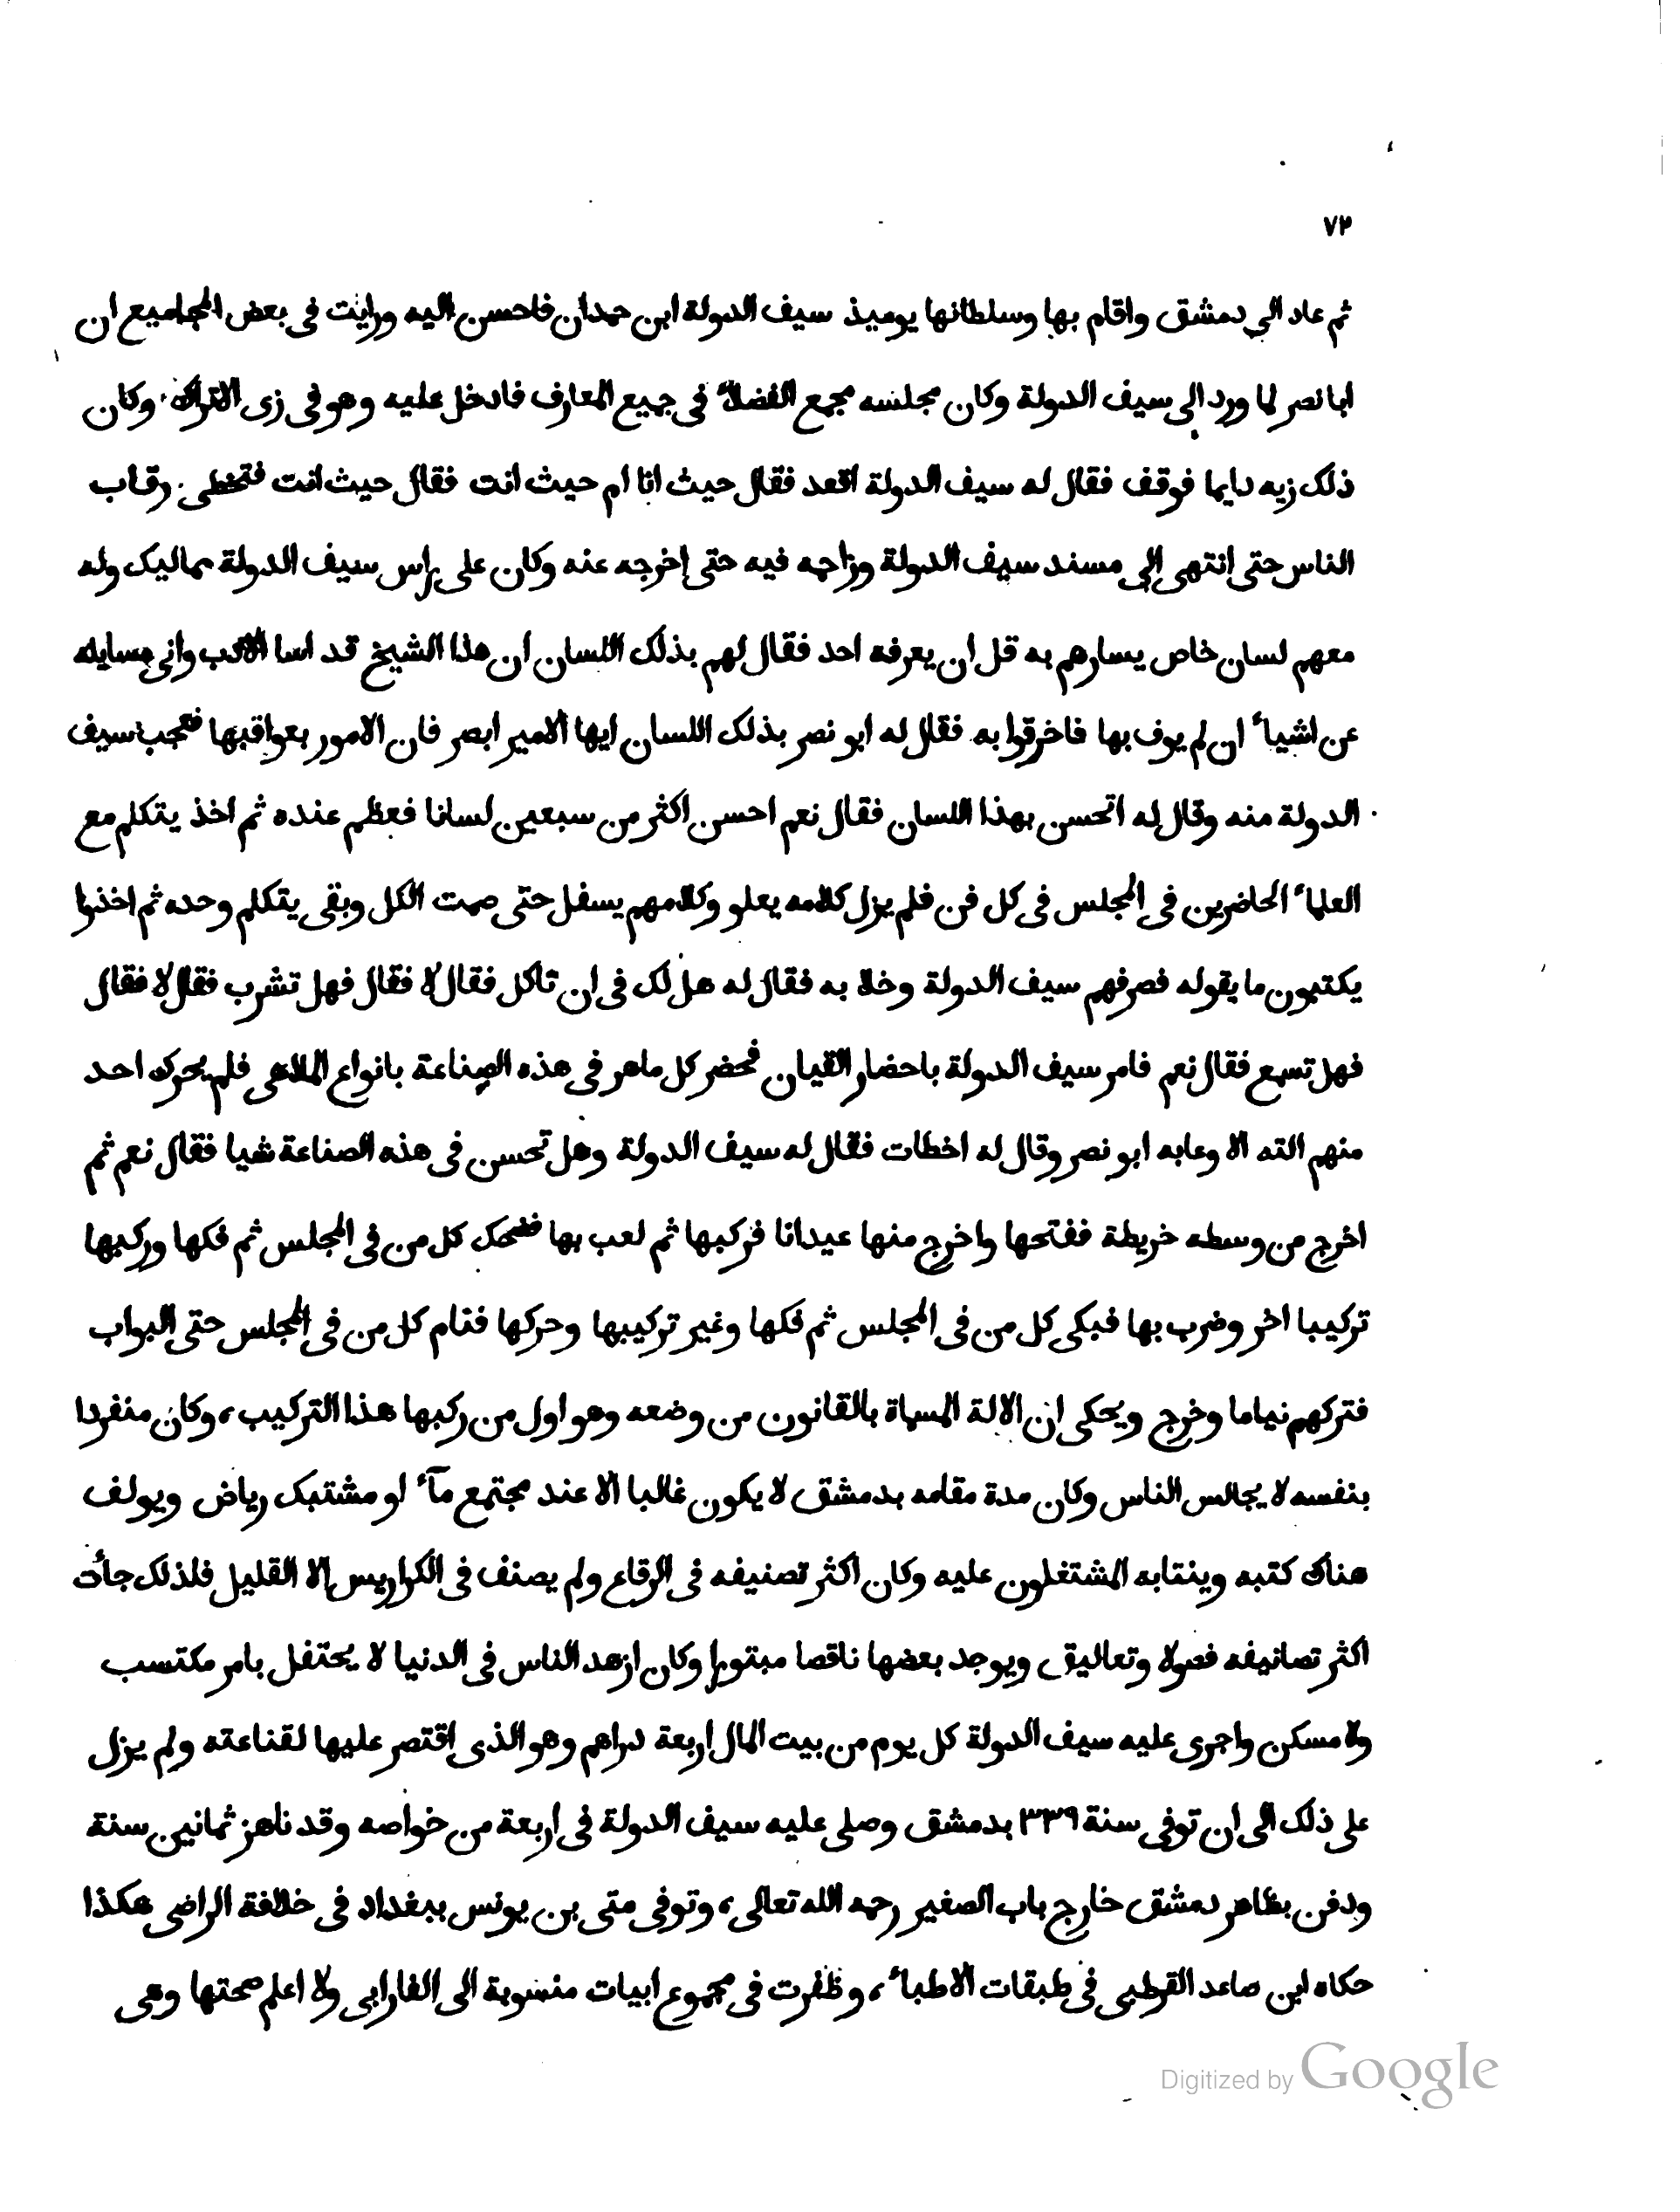 ٧٢
ثم عاد الى دمشق واقام بها وسلطانها يوميذ سيف الدولة ابن حمدان فاحسن اليه ورايت فى بعض المجاميع ان
ابا نصر لما ورد الى سيف الدولة وكان مجلسه مجمع الفضلاء فى جميع المعارف فادخل عليه وهو فى زى الاتراك وكان
ذلك زيه دايما فوقف فقال له سيف الدولة اقعد فقال حيث انا ام حيث انت فقال حيث انت فتخطى رقاب
الناس حتى انتهى الى مسند سيف الدولة وزاحمه فيه حتى اخرجه عنه وكان على راس سيف الدولة مماليك وله
معهم لسان خاص يسارهم به قل ان يعرفه احد فقال لهم بذلك اللسان ان هذا الشيخ قد اسا الادب وانى مسايله
عن اشياء ان لم يوف بها فاخرقوا به فقال له ابو نصر بذلك اللسان ايها الامير ابصر فان الامور بعواقبها فعجب سيف
الدولة منه وقال له اتحسن بهذا اللسان فقال نعم احسن اكثر من سبعين لسانا فعظم عنده ثم اخذ يتكلم مع
العلماء الحاضرين فى المجلس فى كل فن فلم يزل كلامه يعلو وكلامهم يسفل حتى صمت الكل وبقى يتكلم وحده ثم اخذوا
يكتبون ما يقوله فصرفهم سيف الدولة وخلا به فقال له هل لك فى ان تاكل فقال لا فقال فهل تشرب فقال لا فقال
فهل تسمع فقال نعم فامر سيف الدولة باحضار القيان فحضر كل ماهر فى هذه الصناعة بانواع الملاهى فلم يحرك احد
منهم الته الا وعابه ابو نصر وقال له اخطات فقال له سيف الدولة وهل تحسن فى هذه الصناعة شيا فقال نعم ثم
اخرج من وسطه خريطة ففتحها واخرج منها عيدانا فركبها ثم لعب بها فضحك كل من فى المجلس ثم فكها وركبها
تركيبا اخر وضرب بها فبكى كل من فى المجلس ثم فكها وغير تركيبها وحركها فنام كل من فى المجلس حتى البواب
فتركهم نياما وخرج ويحكى ان الالة المسماة بالقانون من وضعه وهو اول من ركبها هذا التركيب، وكان منفردا
بنفسه لا يجالس الناس وكان مدة مقامه بدمشق لا يكون غالبا الا عند مجتمع مآء او مشتبك رياض ويولف
هناك كتبه وينتابه المشتغلون عليه وكان اكثر تصنيفه فى الرقاع ولم يصنف فى الكراريس الا القليل فلذلك جأت
اكثر تصانيفه فصولا وتعاليق ويوجد بعضها ناقصا مبتورا وكان ازهد الناس فى الدنيا لا يحتفل بامر مكتسب
ولا مسكن واجرى عليه سيف الدولة كل يوم من بيت المال اربعة دراهم وهو الذى اقتصر عليها لقناعته ولم يزل
على ذلك الى ان توفى سنة ٣٣٩ بدمشق وصلى عليه سيف الدولة فى اربعة من خواصه وقد ناهز ثمانين سنة
ودفن بظاهر دمشق خارج باب الصغير رحمه الله تعالى، وتوفى متى بن يونس ببغداد فى خلافة الراضى هكذا
حكاه ابن صاعد القرطبى فى طبقات الاطباء، وظفرت فى مجموع ابيات منسوبة الى الفارابى ولا اعلم صحتها وهى
Digitized by Google